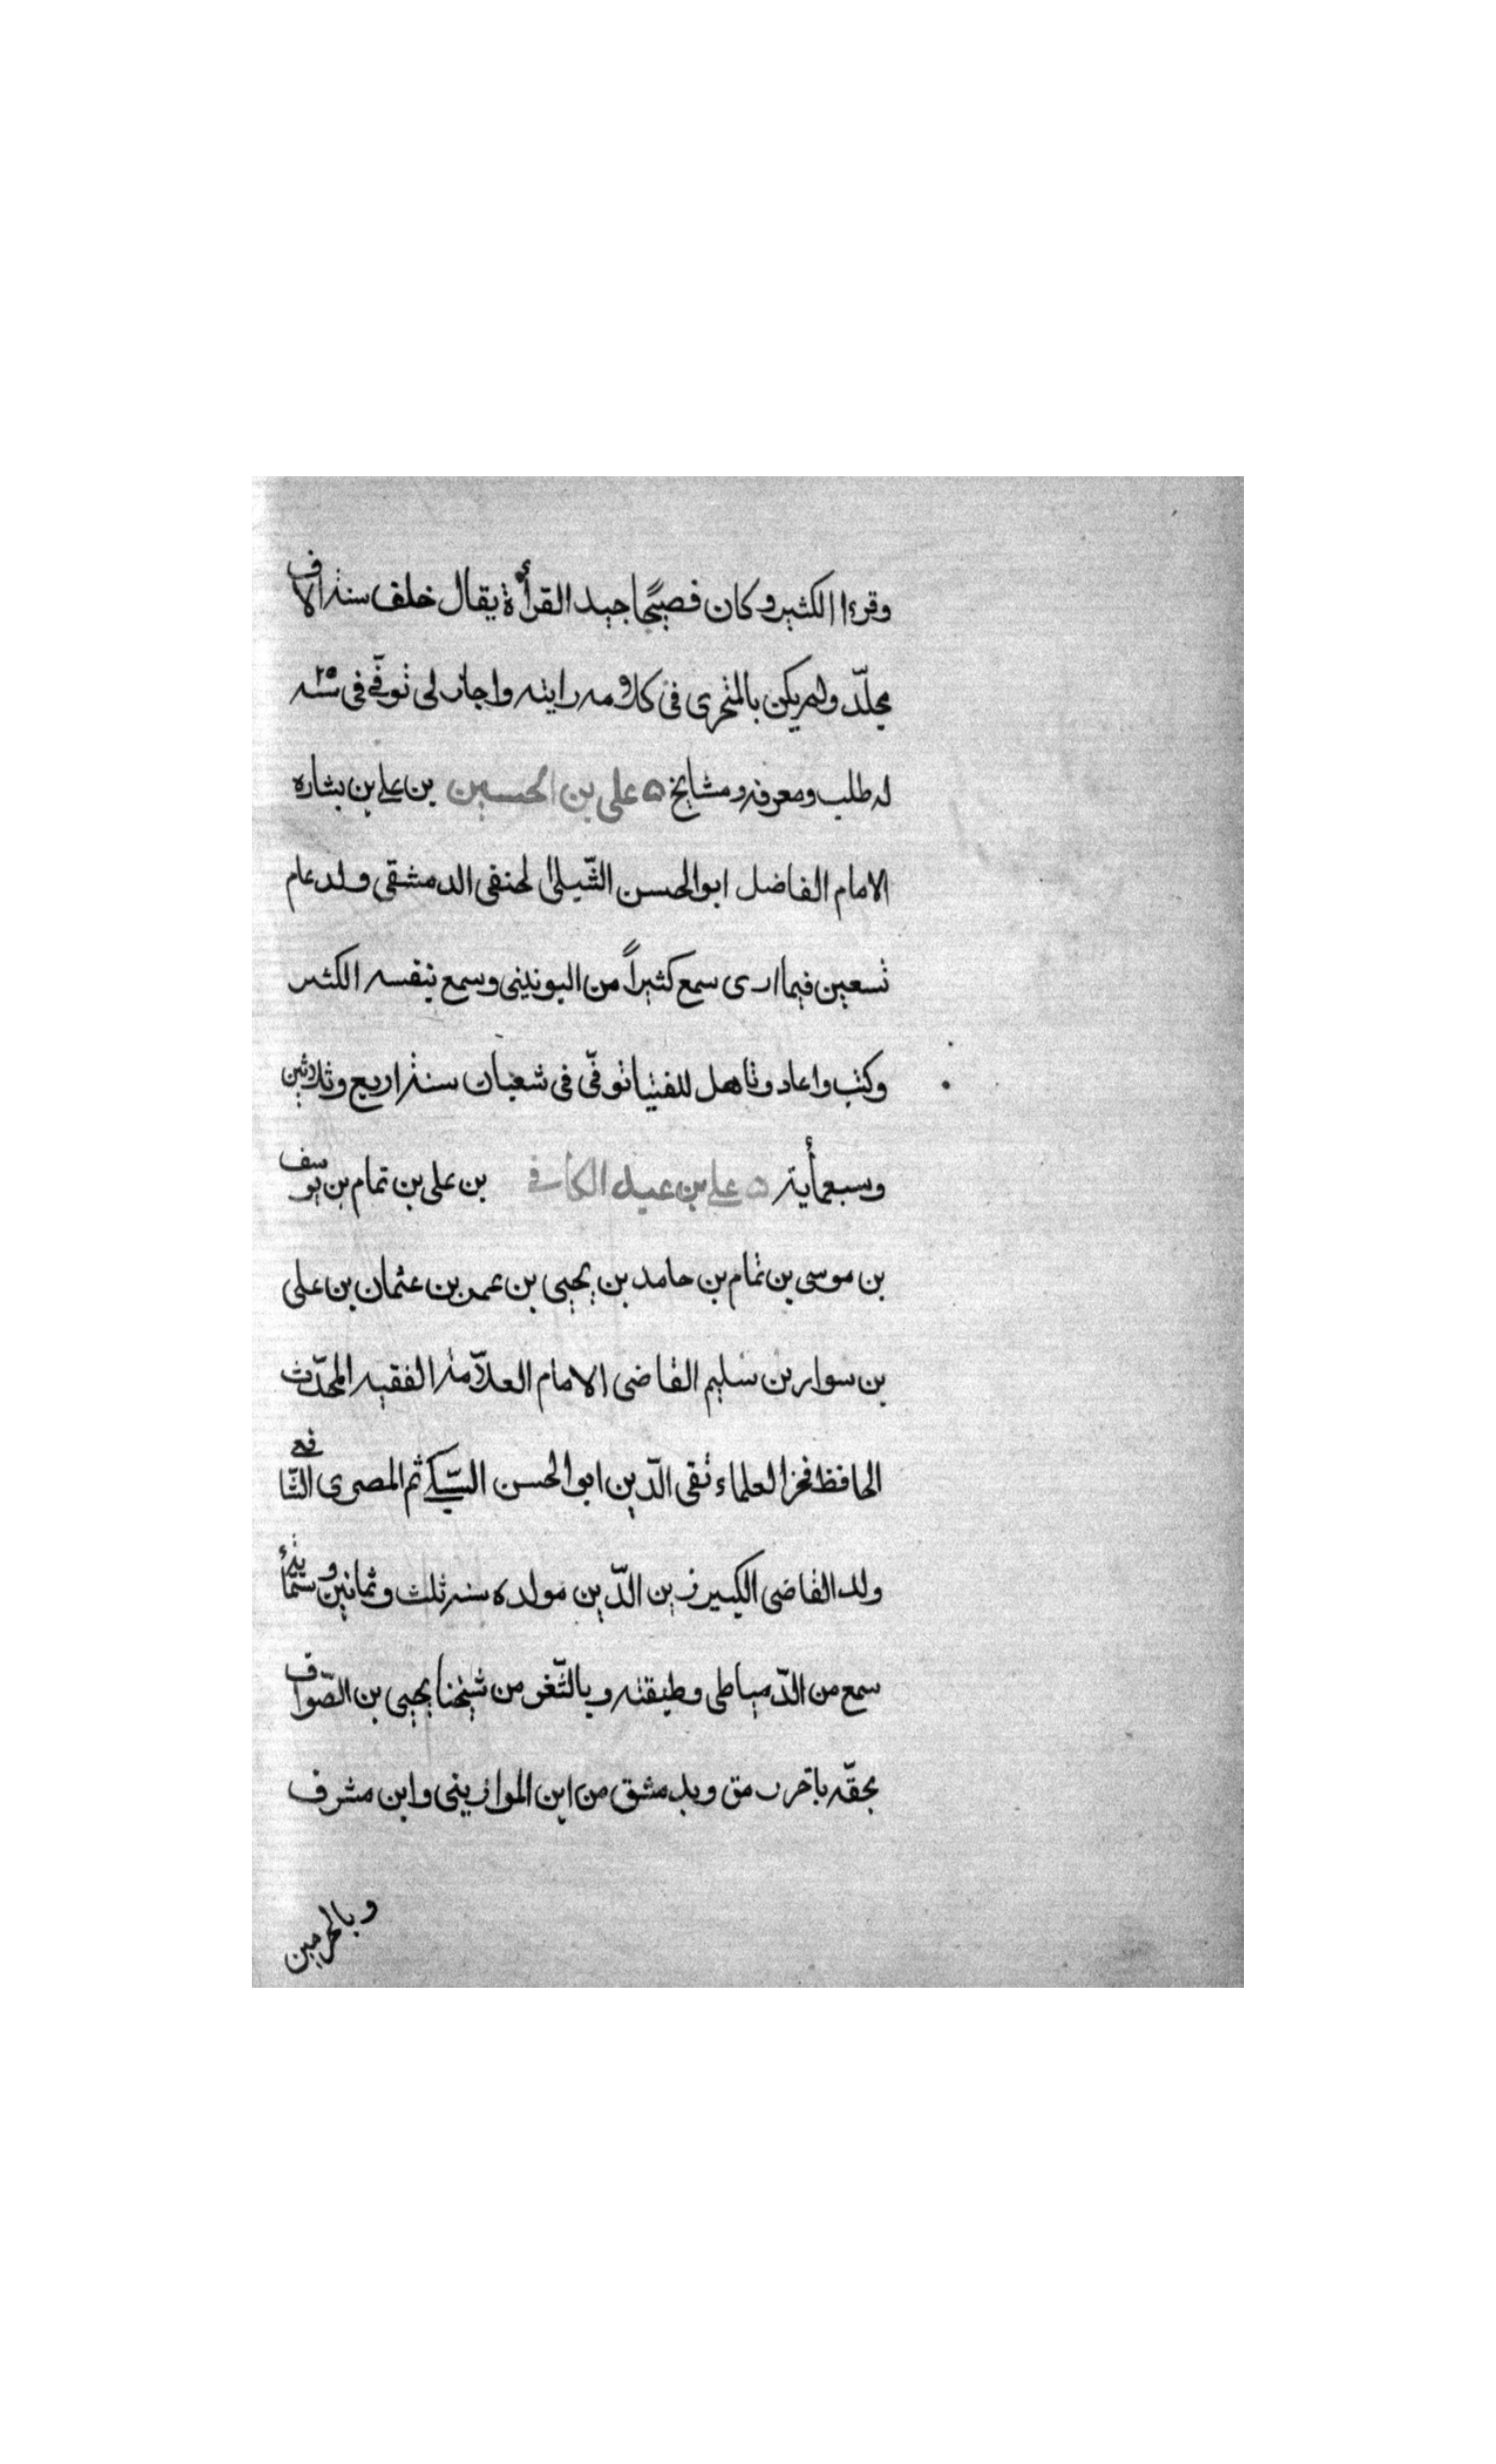 وقرءا الكثير وكان فصيحًا جيد القرأة يقال خلف ستة الاف
مجلّد ولم يكن بالمتحرى فى كلامه رايته واجاز لى توفّى فى سنة ٢٥
له طلب ومعرفه ومشايخ ۵ على بن الحسين بن على بن بشاره
الامام الفاضل ابو الحسن الشّبلى الحنفى الدمشقى ولد عام
تسعين فيما ارى سمع كثيراً من اليونينى وسمع بنفسه الكثير
وكتب واعاد وتاهل للفتيا توفّى فى شعبان سنة اربع وثلاثين
وسبعمأية ۵ على بن عبد الكافى بن على بن تمام بن يوسف
بن موسى بن تمام بن حامد بن يحيى بن عمر بن عثمان بن على
بن سوار بن سليم القاضى الامام العلاّمة الفقيه المحدّث
الحافظ فخر العلماء تقى الدّين ابو الحسن السّبكى ثم المصرى الشّافعى
ولد القاضى الكبير زين الدّين مولده سنة ثلث وثمانين وستمأية
سمع من الدّمياطى وطبقته وبالثّغر من شيخنا يحيى بن الصّواف
بحقّه باخر رمق وبدمشق من ابن الموازينى وابن مشرف
وبالحرمين